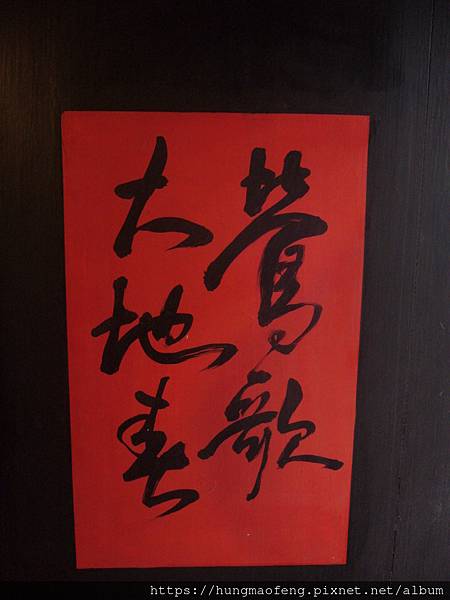 鶯歌
大地春
https://hungmaofeng.pixnet.net/album